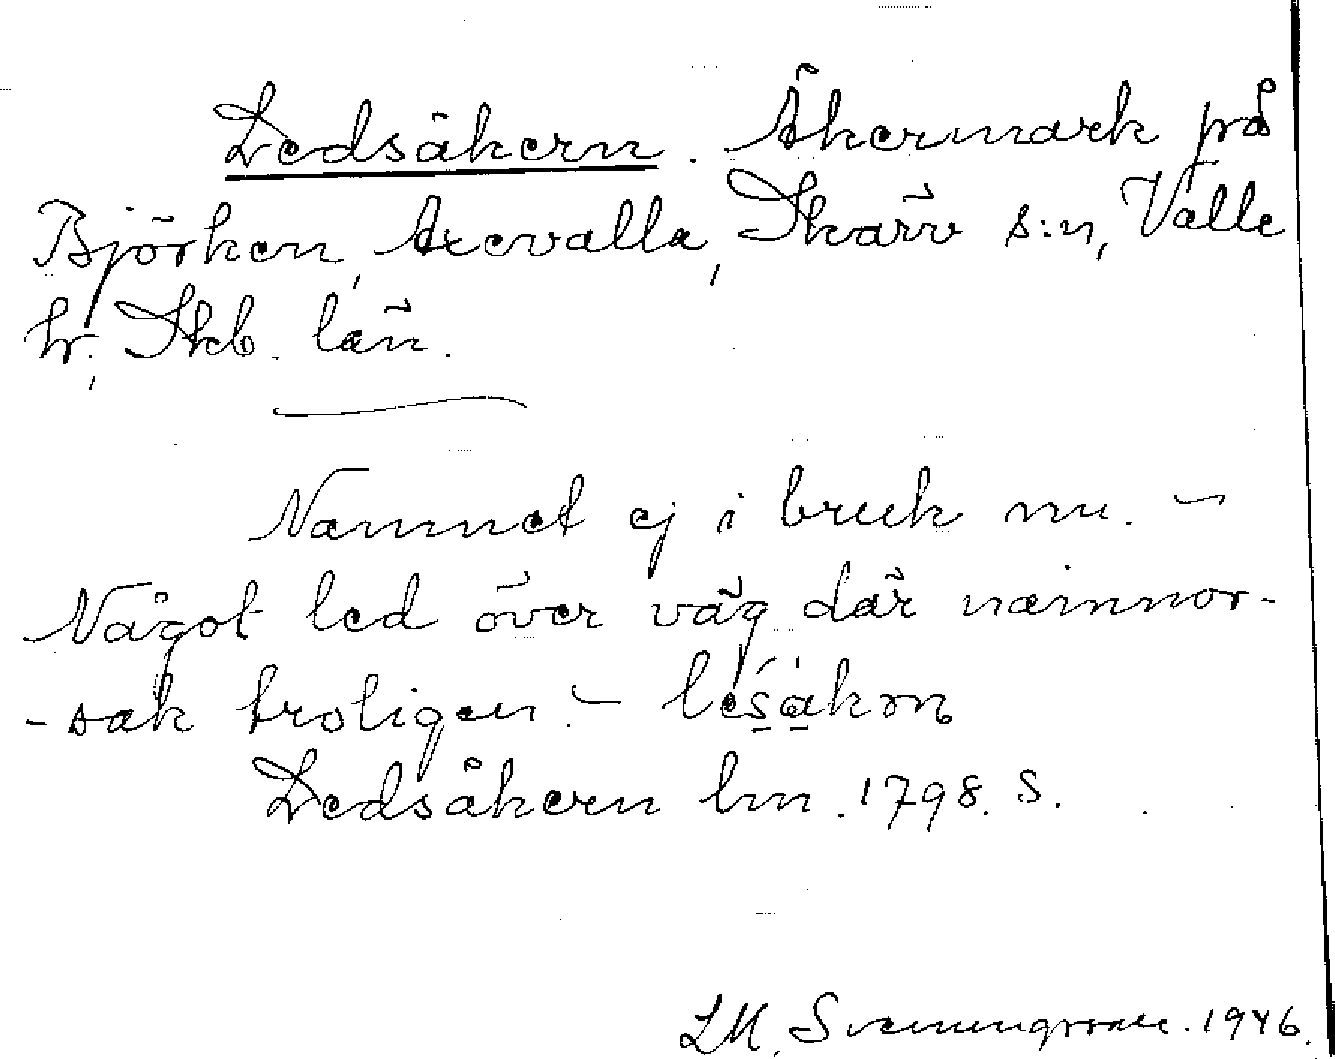 Ledsåkern. Åkermark på
Björken, Axevalla, Skärv s:n, Valle
hr, Skb. län.
Namnet ej i bruk nu. –
Något led över väg där namnor-
-sak troligen. – lésàkɷn
Ledsåkern lm. 1798. S.
LM. Svenungsson. 1946.